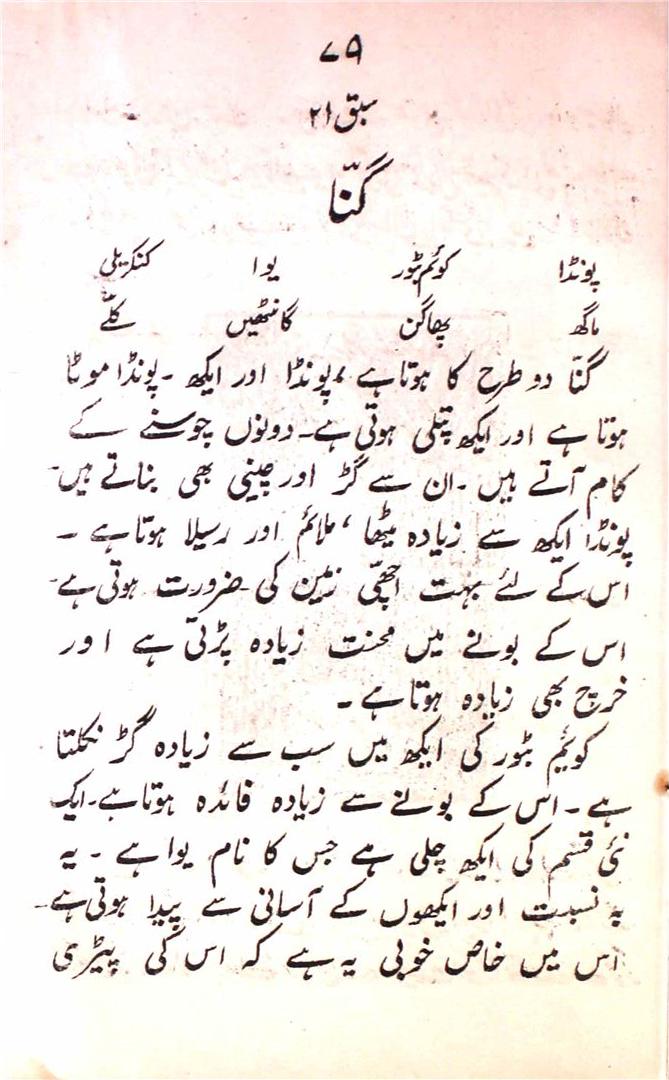 ۷۹
سبق ۲۱
گنّا
پونڈا کوئم بٹور یوا کنکریلی
ماگھ پھاگن گانٹھیں کلّے
گنّا دو طرح کا ہوتا ہے، پونڈا اور ایکھ ۔ پونڈا موٹا
ہوتا ہے اور ایکھ پتلی ہوتی ہے۔ دونوں چوسنے کے
کام آتے ہیں ۔ ان سے گڑ اور چینی بھی بناتے ہیں۔
پونڈا ایکھ سے زیادہ میٹھا ، ملائم اور رسیلا ہوتا ہے ۔
اس کے لئے بہت اچھّی زمین کی ضرورت ہوتی ہے۔
اس کے بونے میں محنت زیادہ پڑتی ہے اور
خرچ بھی زیادہ ہوتا ہے ۔
کوئیم بٹور کی ایکھ میں سب سے زیادہ گڑ نکلتا
ہے ۔ اس کے بونے سے زیادہ فائدہ ہوتا ہے۔ ایک
نئی قسم کی ایکھ چلی ہے جس کا نام یوا ہے ۔ یہ
بہ نسبت اور ایکھوں کے آسانی سے پیدا ہوتی ہے۔
اس میں خاص خوبی یہ ہے کہ اس کی پیڑی